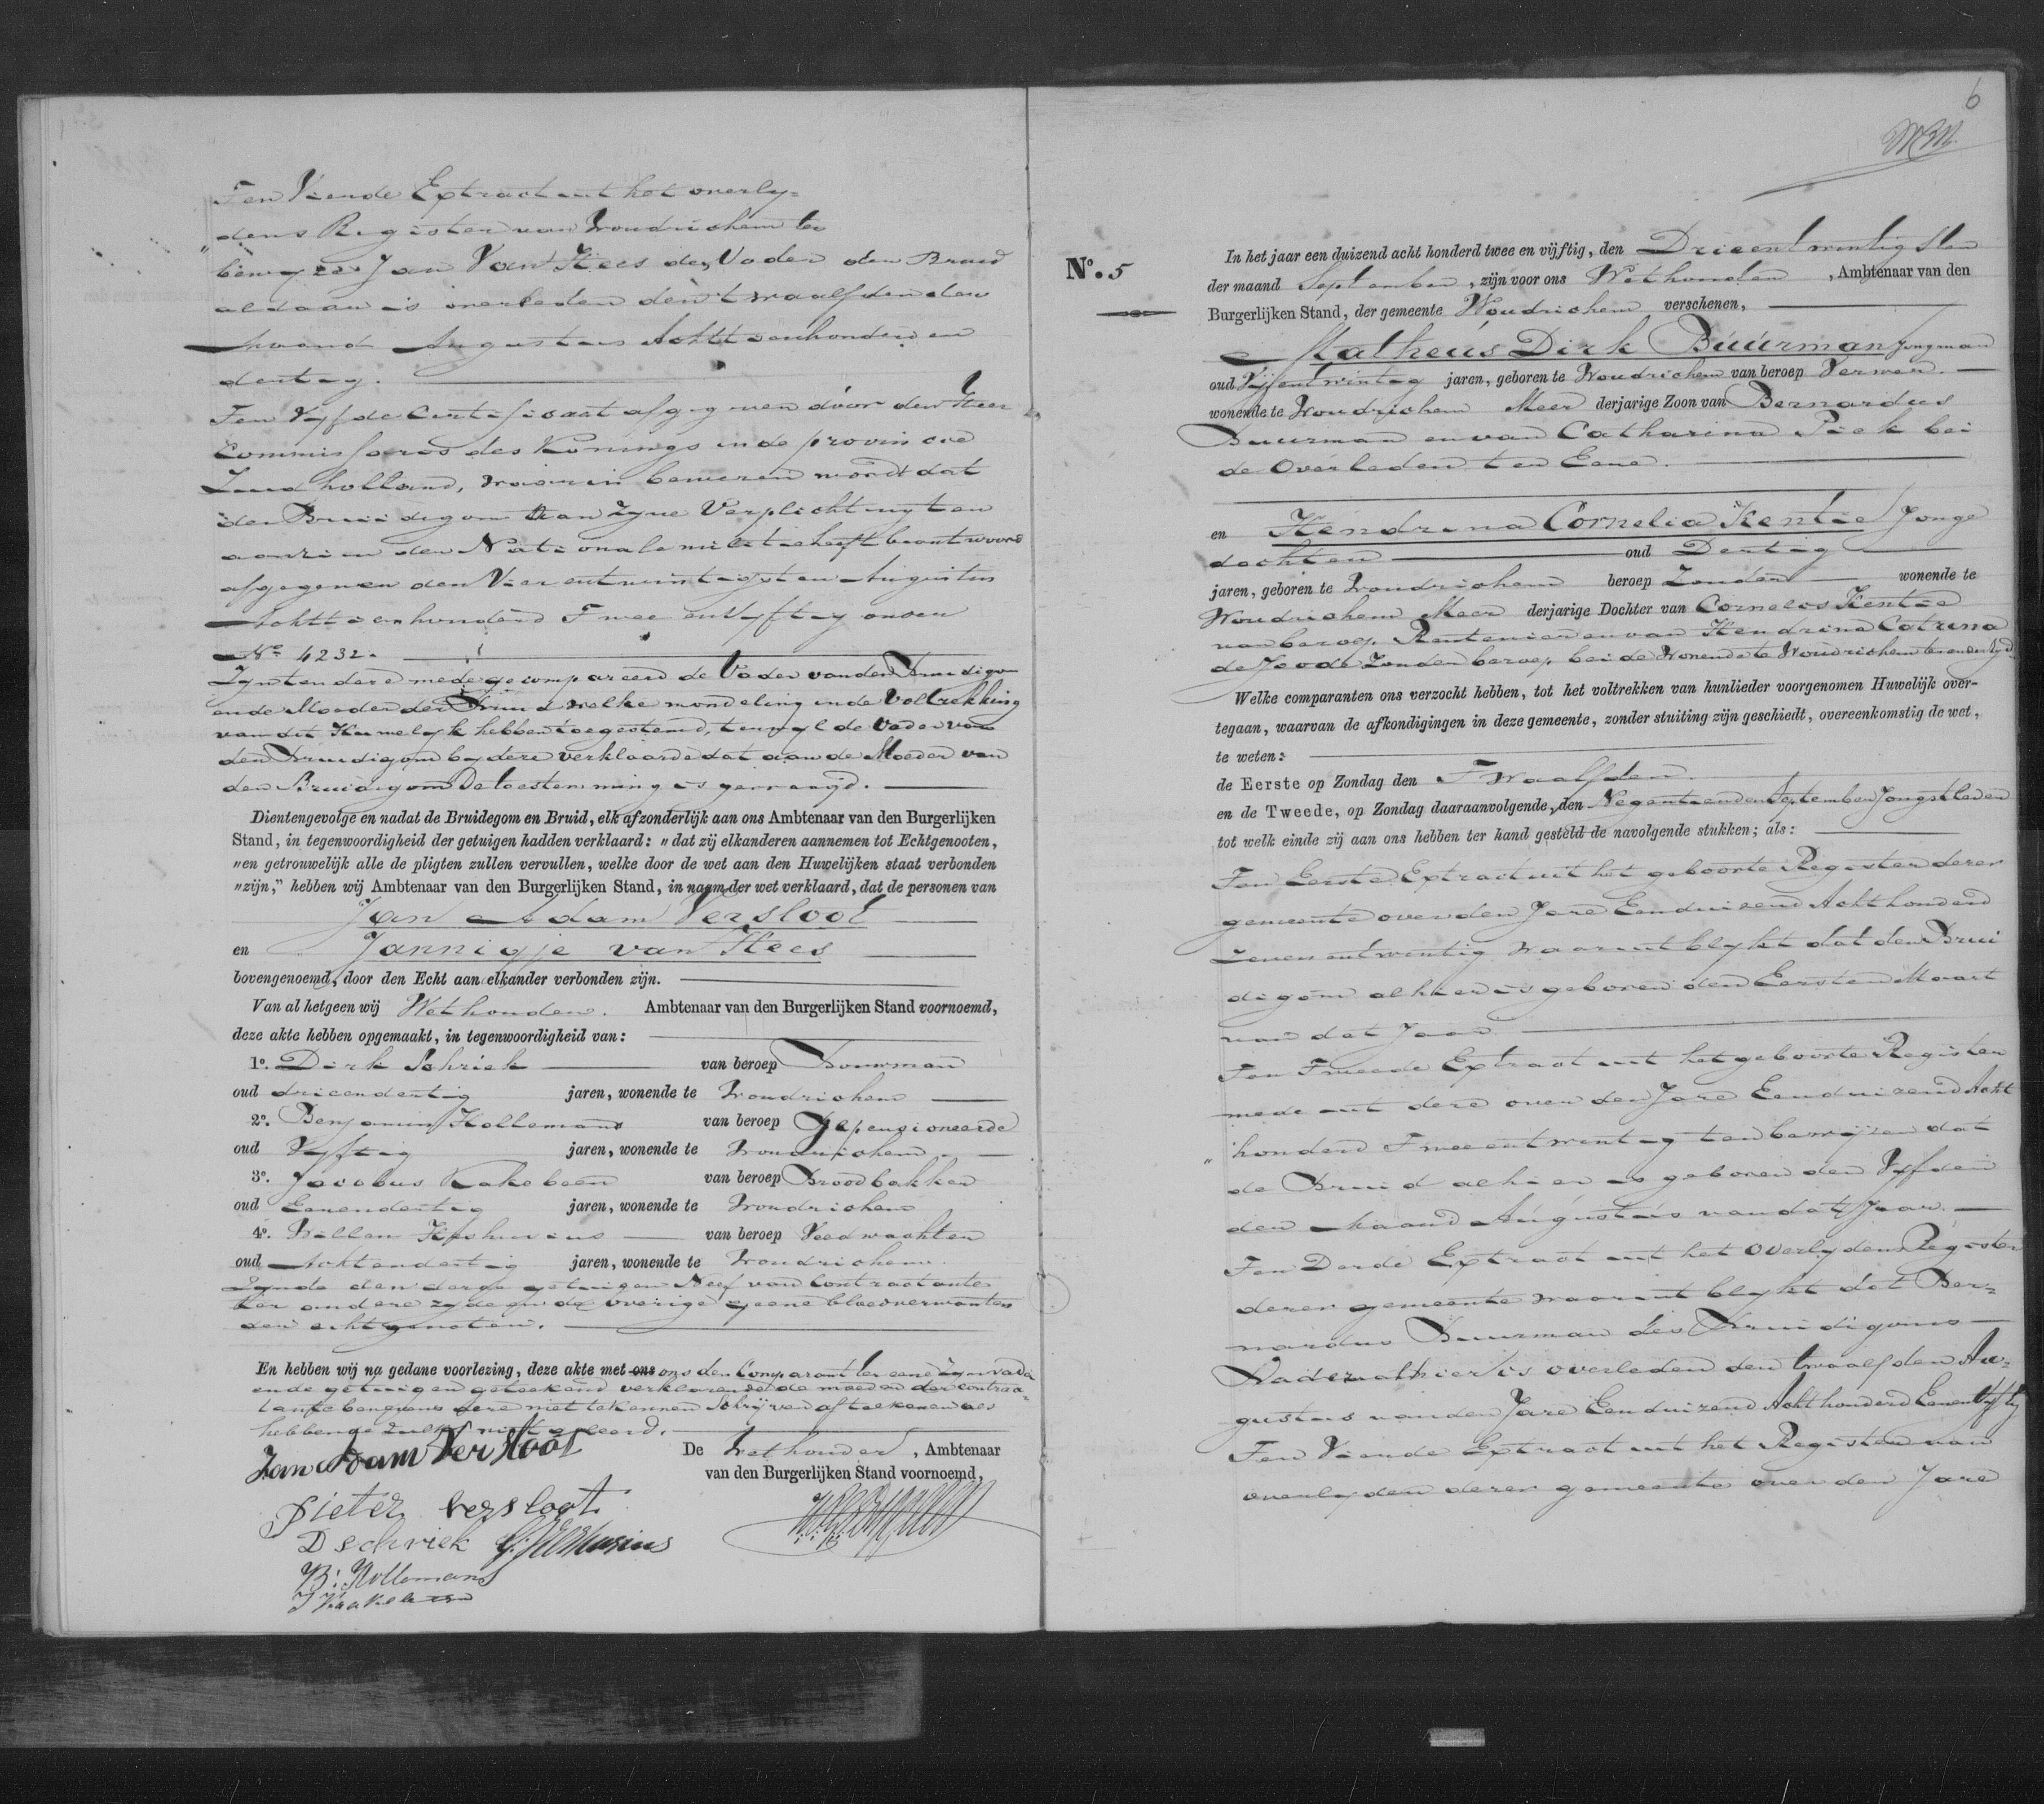 Ten Vierde Extract uit het overly=
"dens Register van Woudrichem ten
bewyze Jan Van Hees de Vader der Bruid
aldaar is overleden den twaalfden der
maand Augustus Achttienhonderd en
dertig.
Ten Vyfde Certificaat afgegeven door den Heer
Commissaris des Konings in de provincie
Zuid holland, waarin bewezen wordt dat
de Bruidigom aan zyne Verplichtingten
aanzien der Nationale militie heeft beantwoord
afgegeven den Vierentwintigsten Augustus
Achttienhonderd Twee en Vyftig onder
No 4232.
Zyn ten deze mede gecompareerd de Vader van den Bruidigom
en de Moeder der Bruid welke mondeling in de Voltrekking
van dit Huwelyk hebben toegestemd, terwyl de Vader van
den Bruidigom by deze verklaarde dat aan de Moeder van
den Bruidigom De toestemming is gevraagd.
Dientengevolge en nadat de Bruidegom en Bruid, elk afzonderlijk aan ons Ambtenaar van den Burgerlijken
Stand, in tegenwoordigheid der getuigen hadden verklaard: „dat zij elkanderen aannemen tot Echtgenooten,
„en getrouwelijk alle de pligten zullen vervullen, welke door de wet aan den Huwelijken staat verbonden
„zijn,” hebben wij Ambtenaar van den Burgerlijken Stand, in naam der wet verklaard, dat de personen van
Jan Adam Versloot
en Jannigje van Hees
bovengenoemd, door den Echt aan elkander verbonden zijn.
Van al hetgeen wij Wethouder. Ambtenaar van den Burgerlijken Stand voornoemd,
deze akte hebben opgemaakt, in tegenwoordigheid van:
1o. Dirk Schriek van beroep Bouwman
oud drieendertig jaren, wonende te Woudrichem
2o. Benjamin Kollemans van beroep Gepensioneerde
oud Vyftig jaren, wonende te Woudrichem
3o. Jacobus Kakebeen van beroep Broodbakker
oud Eenendertig jaren, wonende te Woudrichem
4o. Willem van beroep Veldwachter
oud Achtendertig jaren, wonende te Woudrichem
Zynde den derge getuigen Neef van Contractante
ter andere zyde en de overige geene bloedverwanten
der echtgenoten.
En hebben wij na gedane voorlezing, deze akte met ons ons den Comparant ter eene Zyn vader
en de getuigen geteekend verklarende de moeder der contrac-
tante benevens deze niet te kennen Schrijven of teekenen als
hebbende zulks niet geleerd.
Jan Adam Versloot De Wethouder, Ambtenaar
van den Burgerlijken Stand voornoemd,
Pieter versloot
D Schriek
B: Kollemans
J Kaakebeen
6
No. 5
In het jaar een duizend acht honderd twee en vijftig, den Drieentwintigsten
der maand September, zijn voor ons Wethouder, Ambtenaar van den
Burgerlijken Stand, der gemeente Woudrichem verschenen,
Matheus Dirk Buurman Jongman
oud Vijfentwintig jaren, geboren te Woudrichem van beroep Verwer
wonende te Woudrichem Meer derjarige Zoon van Bernardus
Buurman en van Catharina Piek bei
de Overleden ter Eene.
en Hendrina Cornelia Kentie Jonge
dochter oud Dertig
jaren, geboren te Woudrichem beroep Zonder wonende te
Woudrichem Meer derjarige Dochter van Cornelis Kentie
van beroep Rentenier en van Hendrina Catrina
de Joode Zonder beroep beide Wonende te Woudrichem ter andere zyde
Welke comparanten ons verzocht hebben, tot het voltrekken van hunlieder voorgenomen Huwelijk over-
tegaan, waarvan de afkondigingen in deze gemeente, zonder stuiting zijn geschiedt, overeenkomstig de wet,
te weten:
de Eerste op Zondag den Twaalfden
en de Tweede, op Zondag daaraanvolgende, den Negentienden September Jongstleden
tot welk einde zij aan ons hebben ter hand gesteld de navolgende stukken; als:
Ten Eerste Extract uit het geboorte Register dezer
gemeente over den Jare Eenduizend Achthonderd
Zevenentwintig waaruit blykt dat den Brui
digom alhier is geboren den Eersten Maart
van dat Jaar.
Ten Tweede Extract uit het geboorte Register
mede uit deze over den Jare Eenduizend Acht
"honderd Tweeentwintig ten bewijzen dat
de Bruid alhier is geboren den Vyfden
der Maand Augustus van dat Jaar.
Ten Derde Extract uit het Overlydens Register
dezer gemeente waaruit blykt dat Ber=
nardus Buurman des Bruidigoms
Vader alhier is overleden den twaalfden Au=
gustus van den Jare Eenduizend Achthonderd Eenenvyftig
Ten Vierde Extract uit het Register van
overlyden dezer gemeente over den Jare